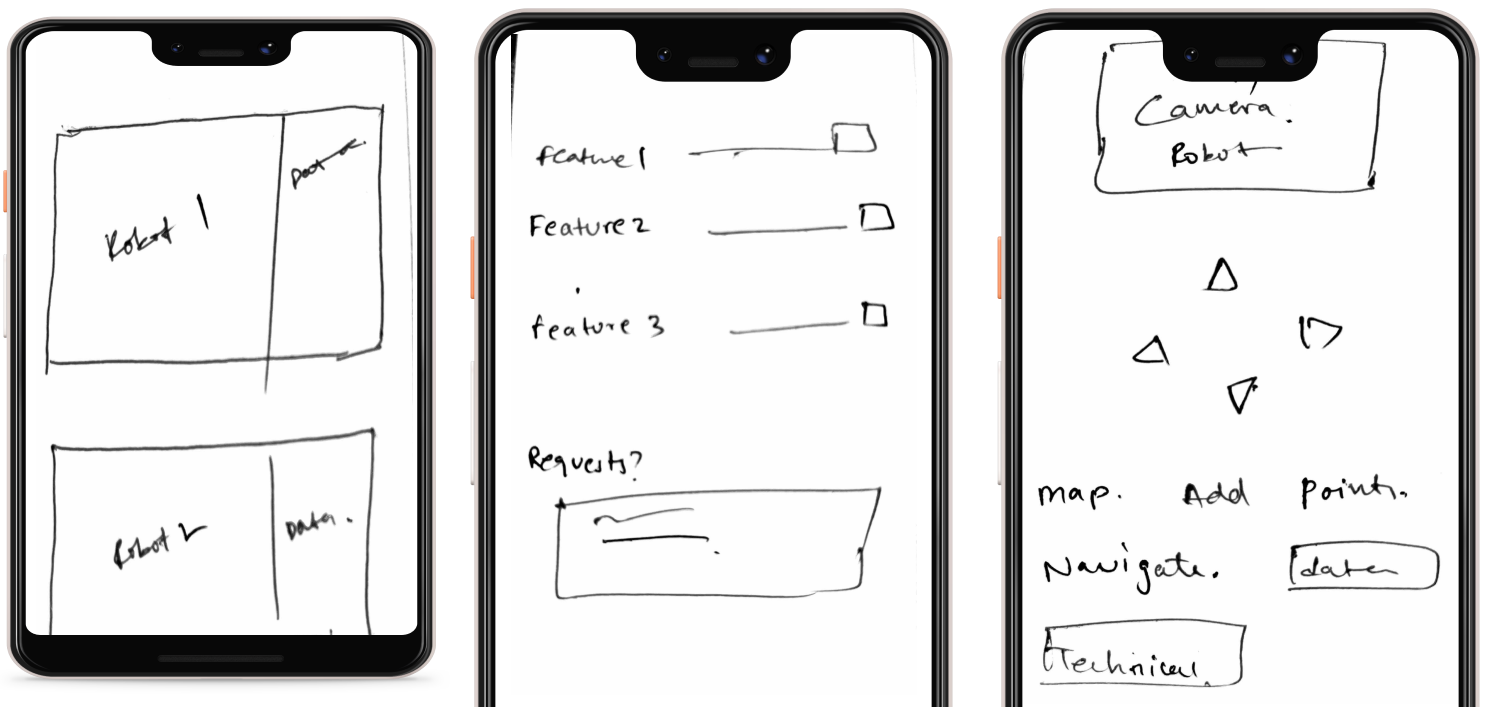 Robot 1
Data.
Robot 2
Data.
feature 1
Feature 2
feature 3
Requests?
Camera.
Robot
map. Add Points.
Navigate. data
Technical.